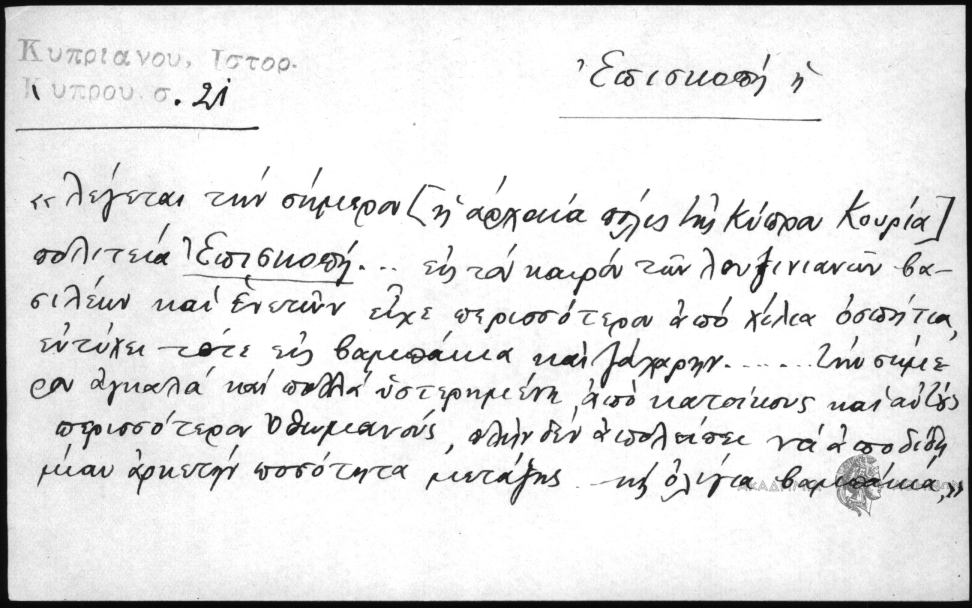 Κυπριανου, Ιστορ.
Κυπρου σ. 21
Ἐπισκοπή ἡ
«λέγεται τὴν σήμερον [ἡ ἀρχαία πόλις τῆς Κύπρου Κουρία]
πολιτεία Ἐπισκοπή... εἰς τὸν καιρὸν τῶν Λουζινιανῶν βα-
σιλέων καὶ Ἐνετῶν εἶχε περισσότερον ἀπό χίλια ὁσπήτια,
εὐτύχει τότε εἰς βαμπάκια καὶ ζάχαρην....... τὴν σήμε-
ρον ἀγκαλά καὶ πολλά ὑστερημένη ἀπό κατοίκους καὶ αὐτούς
περισσότερον Ὀθωμανούς, πλὴν δὲν ἀπολείπει νὰ ἀποδίδῃ
μίαν ἀρκετὴν ποσότητα μετάξης κὶ ὀλίγα βαμπάκια,»
ΑΚΑΔΗΜΙΑ